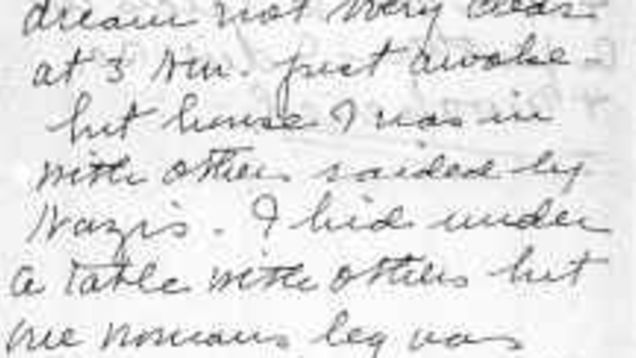 dream not very clear
at 3 A.M. just awoke -
but house I was in
with others raided by
Nazis. I hid under
a table with others but
one womans leg was